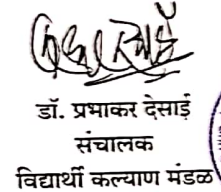 डॉ. प्रभाकर देसाई
संचालक
विद्यार्थी कल्याण मंडळ